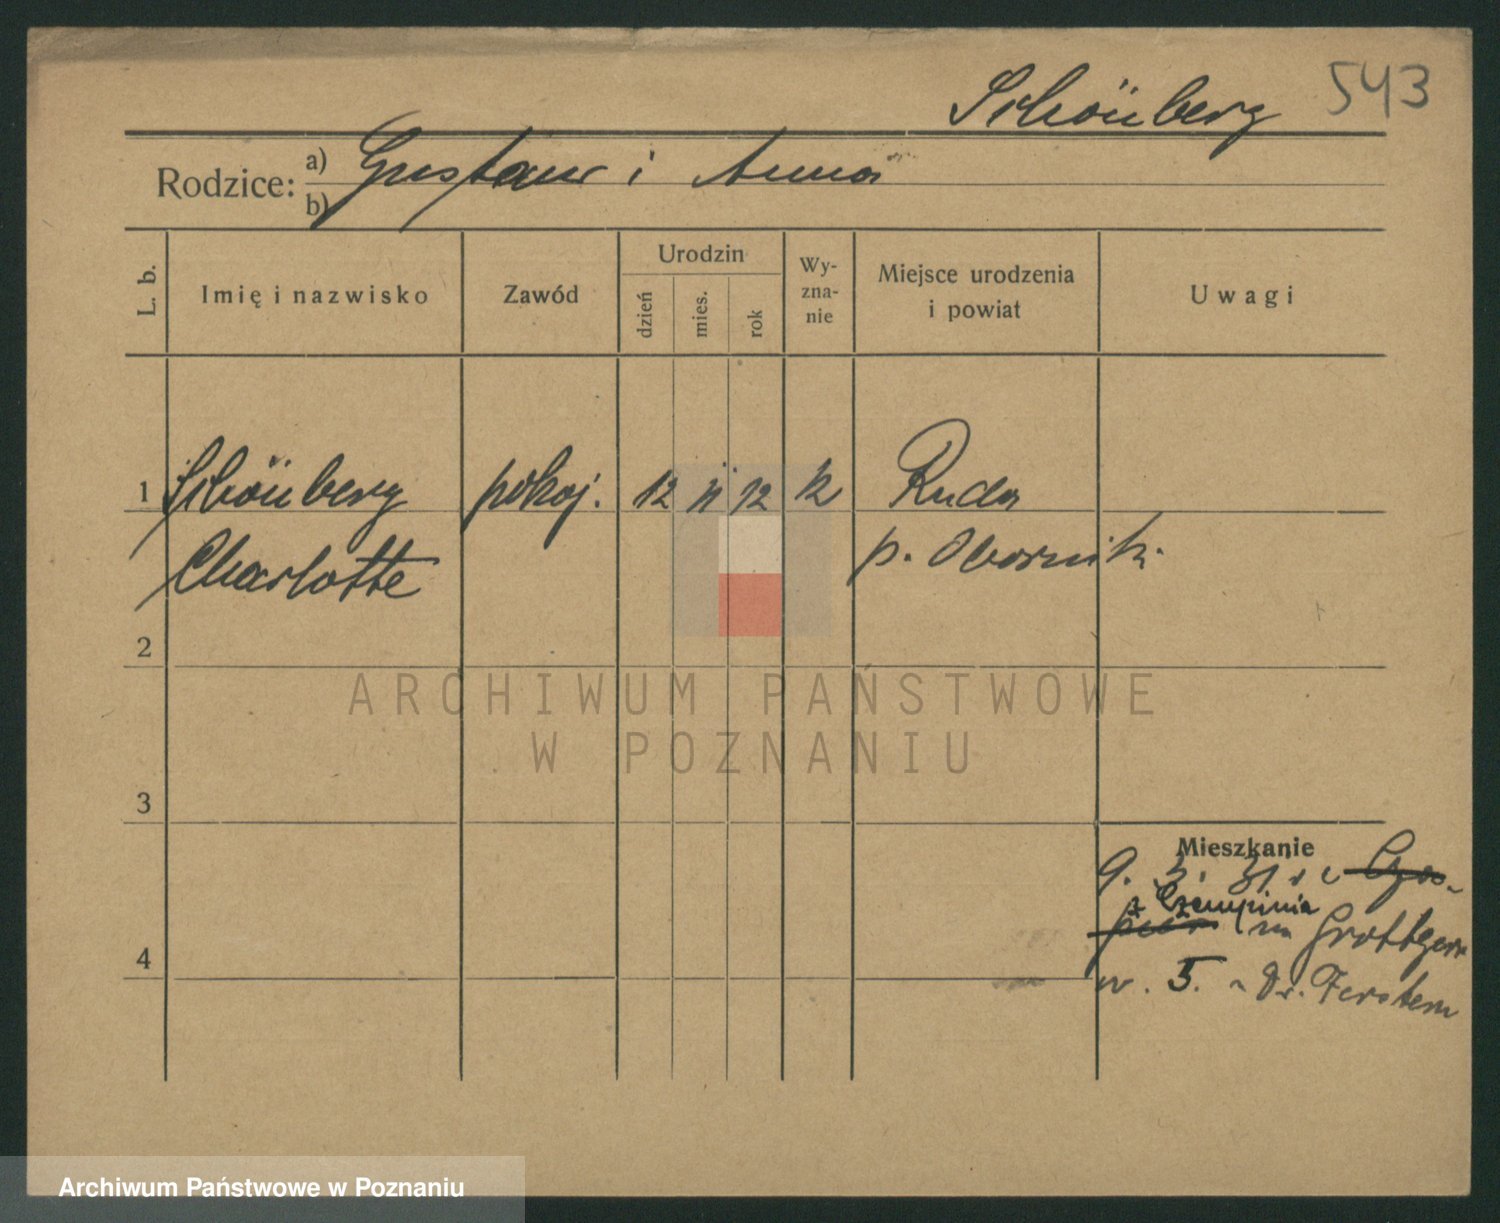 Schönberg 543
Rodzice: a) Gustaw i Anna
b)
L. b. Imię i nazwisko Zawód Urodzin dzień mies. rok Wy-zna-nie Miejsce urodzenia i powiat Uwagi
1 Schönberg pokoj. 12 12 k Ruda
Charlotte p. Obornik
2
ARCHIWUM PAŃSTWOWE
W POZNANIU
3
Mieszkanie
9. 3. 31
z Czempinia
Grottgera
5. Dr.
4
Archiwum Państwowe w Poznaniu